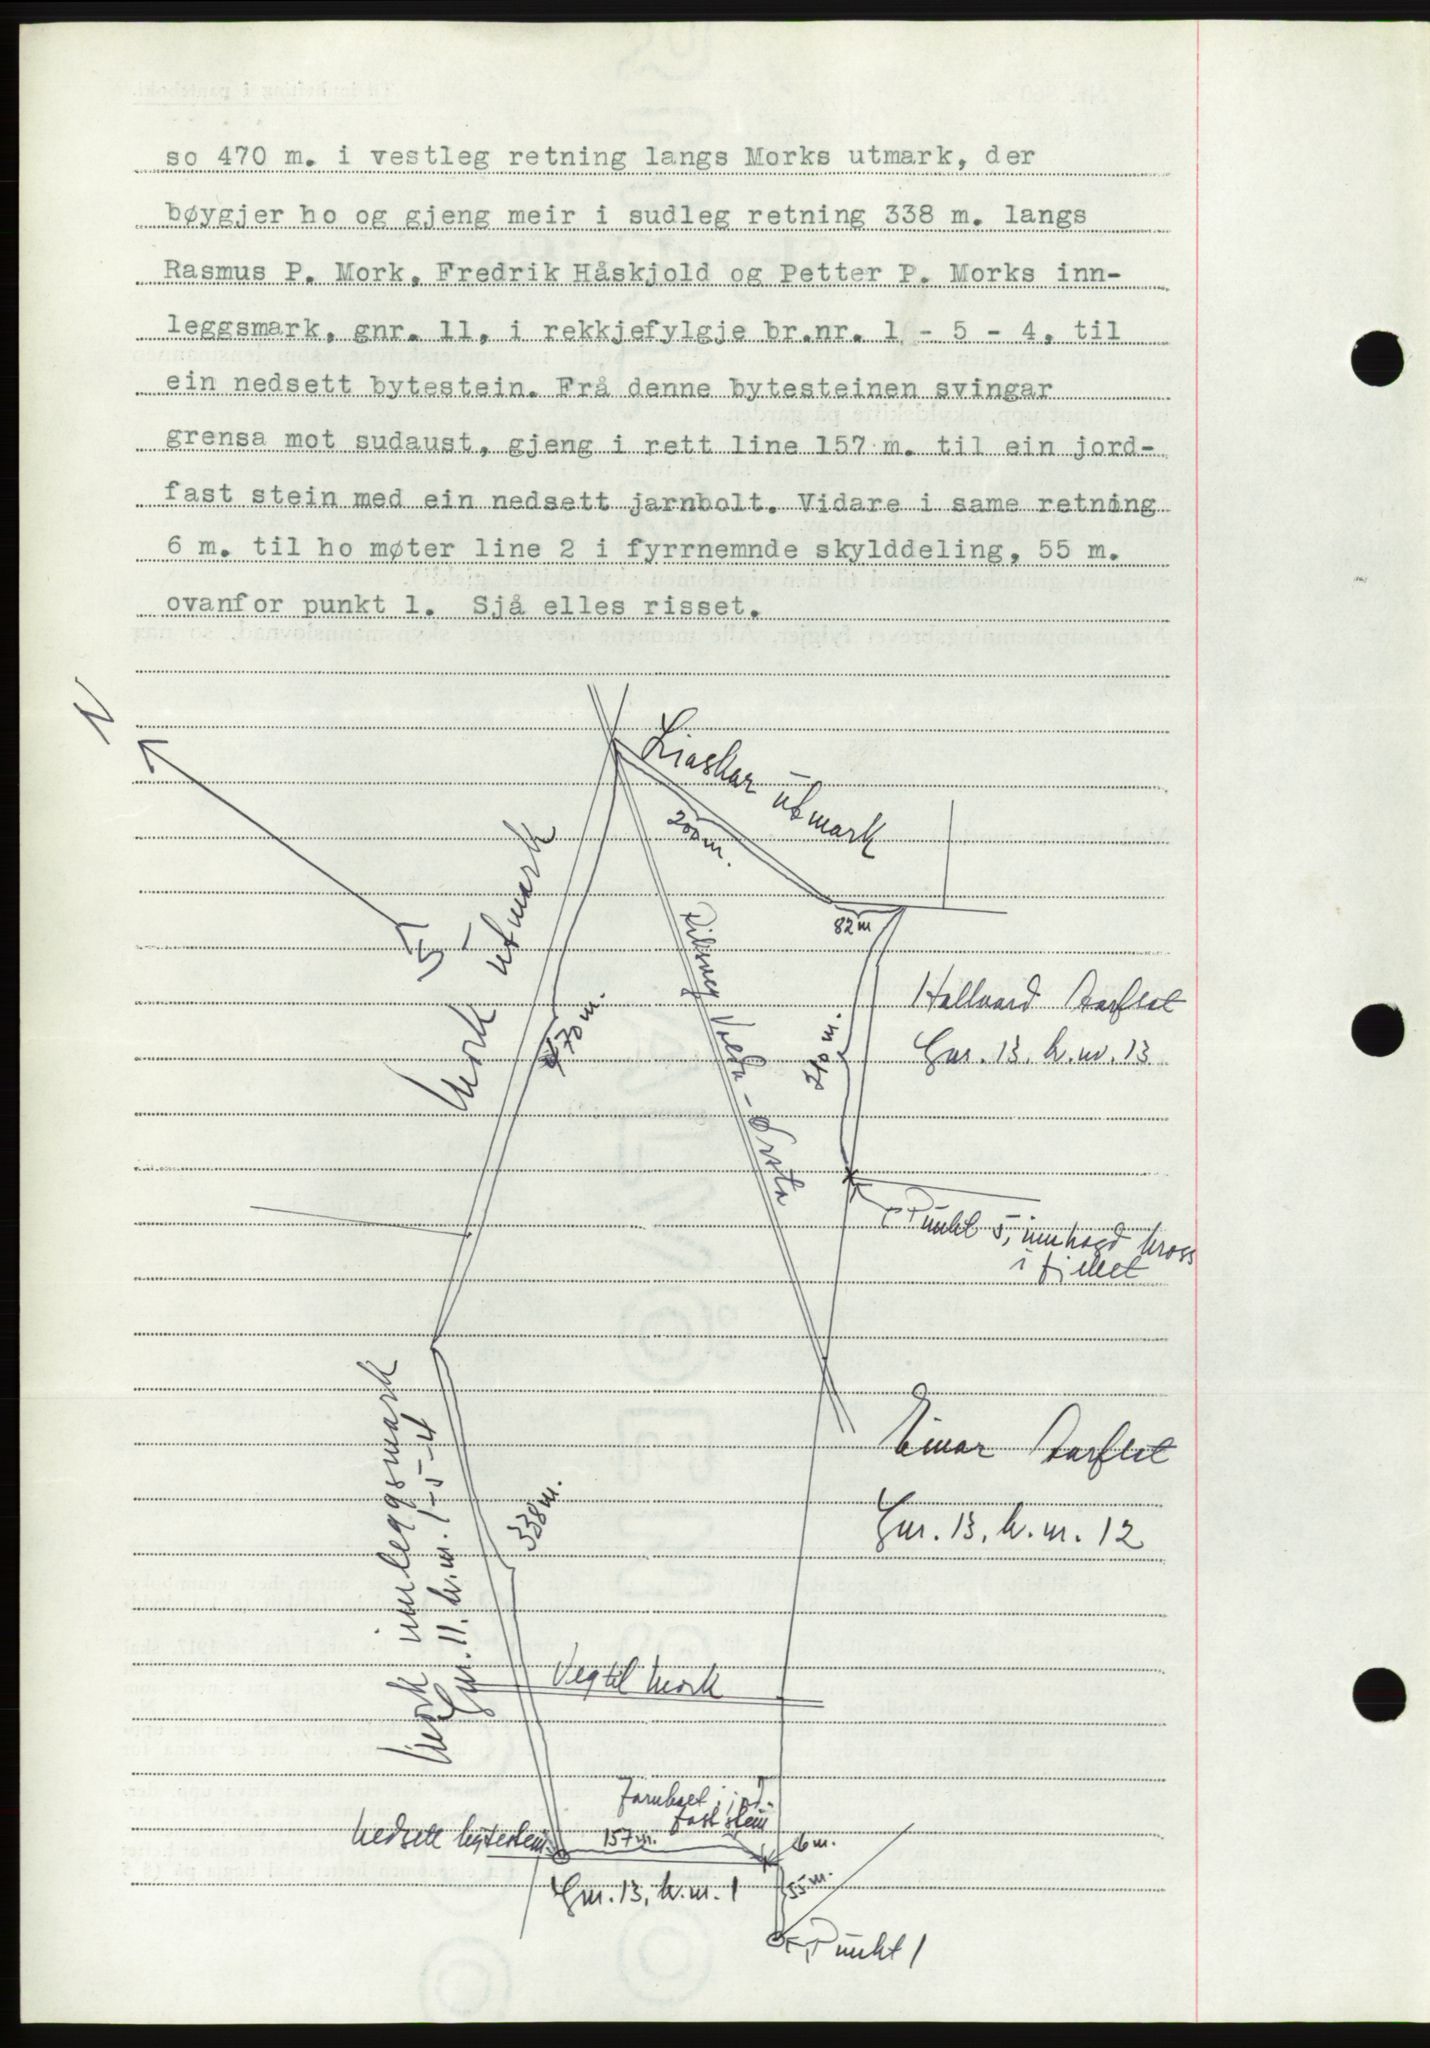 so 470 m. i vestleg retning langs Morks utmark, der
bøygjer ho og gjeng meir i sudleg retning 338 m. langs
Rasmus P. Mork, Fredrik Håskjold og Petter P. Morks inn-
leggsmark, gnr. 11, i rekkjefylgje br.nr. 1 - 5 - 4, til
ein nedsett bytestein. Frå denne bytesteinen svingar
grensa mot sudaust, gjeng i rett line 157 m. til ein jord-
fast stein med ein nedsett jarnbolt. Vidare i same retning
6 m. til ho møter line 2 i fyrrnemnde skylddeling, 55 m.
ovanfor punkt 1. Sjå elles risset.
N
S
Liaskar utmark
200 m.
82 m
Mork utmark
470 m.
Riksveg Volda - Ørsta
210 m.
Hallvard Aarflot
Gnr. 13, br.nr. 13
Punkt 5, innhogd kross
i fjellet
Mork innleggsmark
Gnr. 11. br.nr. 1-5-4
338 m.
Einar Aarflot
Gnr. 13, br.nr. 12
Veg til Mork
Jarnbolt i jord-
fast stein
Nedsett bytestein
157 m.
6 m.
Gnr. 13, br.nr. 1
55 m.
Punkt 1